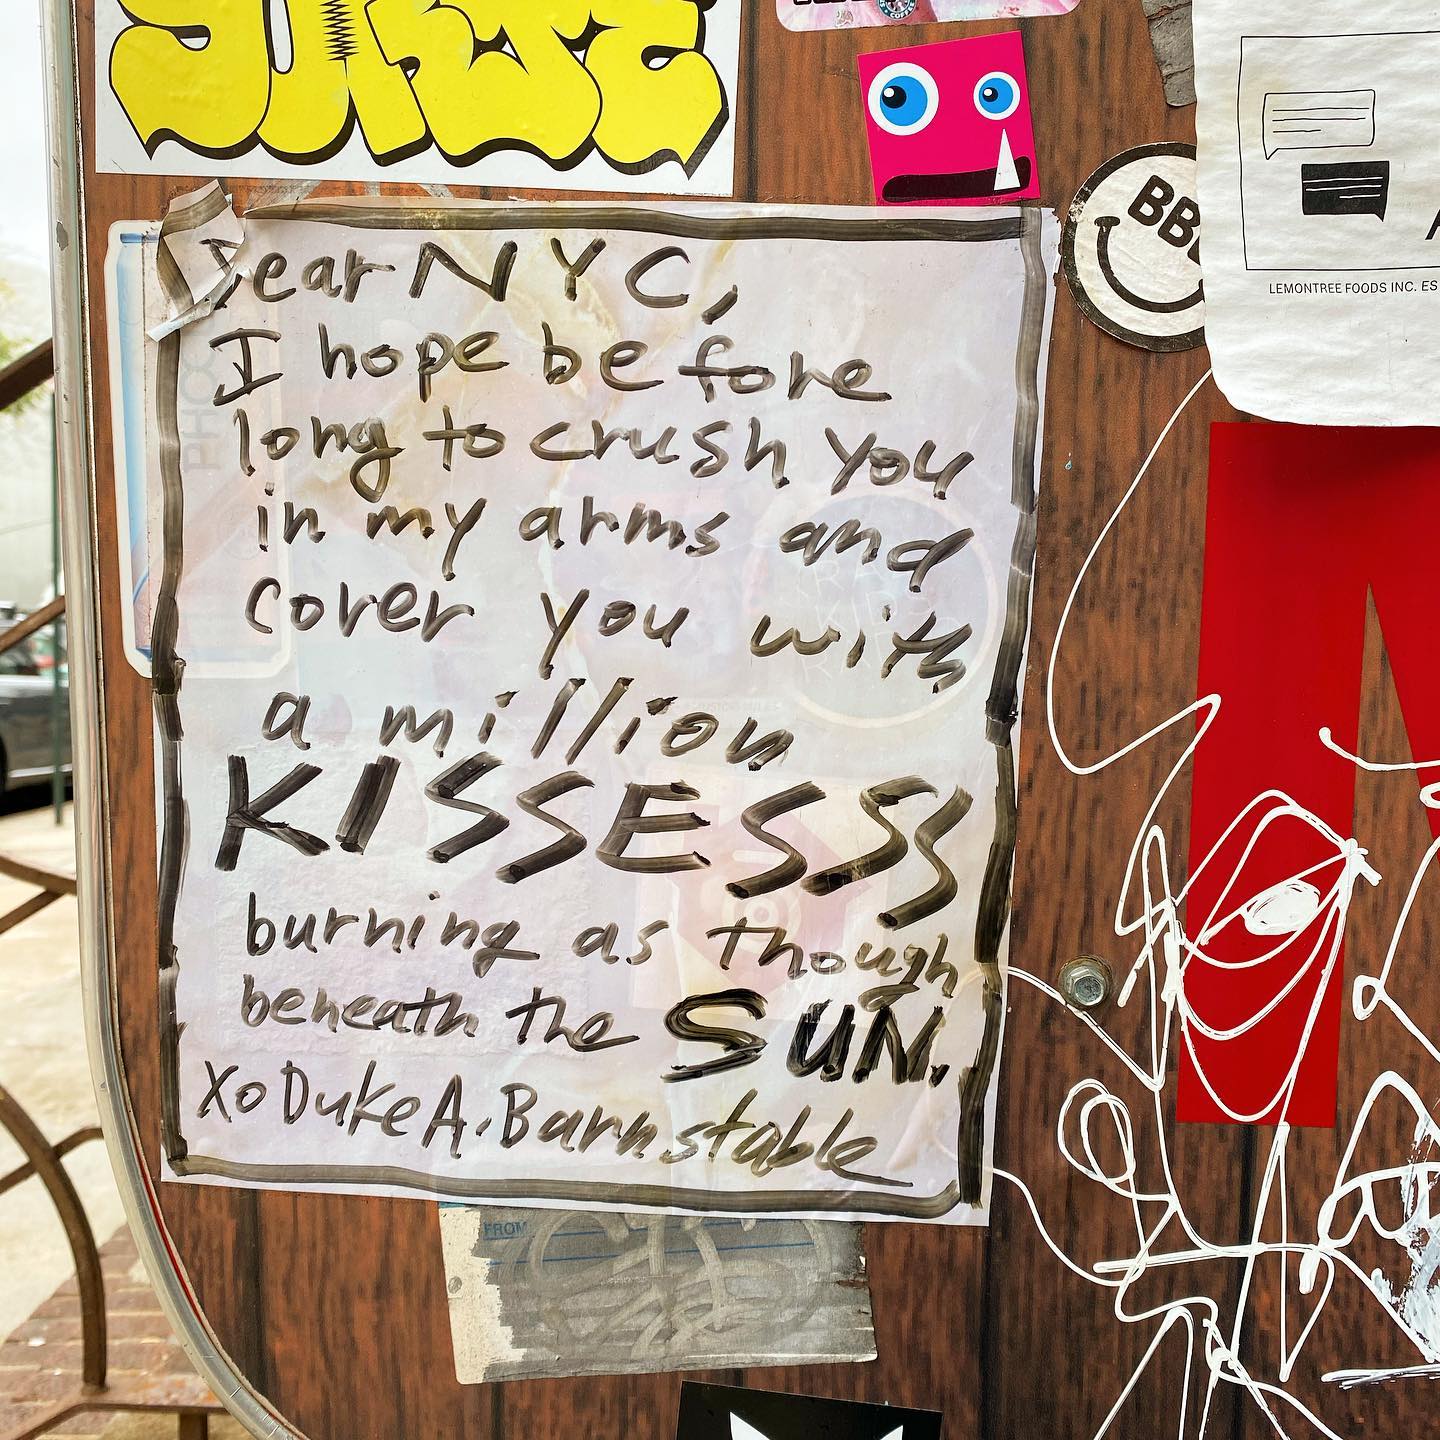 Dear NYC,
I hope before
long to crush you
in my arms and
cover you with
a million
KISSESSS
burning as though
beneath the SUN.
XO Duke A. Barnstable
LEMONTREE FOODS INC. ES
FROM